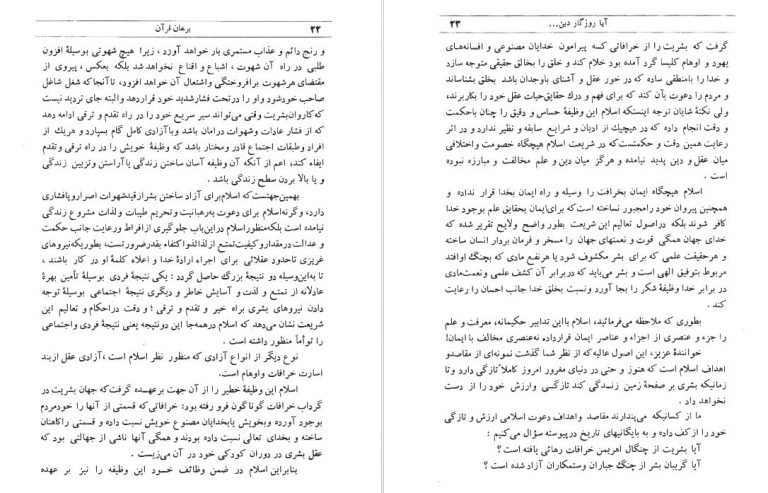 ۲۲ برهان قرآن
و رنج دائم و عذاب مستمری بار خواهد آورد ، زیرا هیچ شهوتی بوسیلهٔ افزون
طلبی در راه آن شهوت ، اشباع و اقناع نخواهد شد بلکه بعکس ، پیروی از
مقتضای هرشهوت برافروختگی واشتعال آن خواهد افزود، تا آنجا که شغل شاغل
صاحب خودشود و او را درتحت فشار شدید خود قرار دهد و البته جای تردید نیست
که کاروان بشریت وقتی می‌تواند سیر سریع خود را در راه تقدم و ترقی ادامه دهد
که از فشار عادات وشهوات درامان باشد و با آزادی کامل گام بسپارد و هریك از
افراد وطبقات اجتماع قادر ومختار باشد که وظیفهٔ خویش را در راه ترقی وتقدم
ایفاء کند، اعم از آنکه آن وظیفه آسان ساختن زندگی یا آراستن وتزیین زندگی
و یا بالا بردن سطح زندگی باشد .
بهمین جهتست که اسلام برای آزاد ساختن بشر از قید شهوات اصرار و پافشاری
دارد، و گرنه اسلام برای دعوت به رهبانیت و تحریم طیبات و لذات مشروع زندگی
نیامده است بلکه منظور اسلام در این باب جلوگیری از افراط و رعایت جانب حکمت
و عدالت در مقدار و کیفیت تمتع از لذائذ و اکتفاء بقدر ضرورتست، بطوریکه نیروهای
غریزی تا حدود عقلائی برای اجراء ارادهٔ خدا و اعلاء کلمهٔ او در کار باشند ،
تا به این وسیله دو نتیجهٔ بزرگ حاصل گردد : یکی نتیجهٔ فردی بوسیلهٔ تأمین بهرهٔ
عادلانه از تمتع و لذت و آسایش خاطر و دیگری نتیجهٔ اجتماعی بوسیلهٔ توجه
دادن نیروهای بشری براه خیر و تقدم و ترقی ؛ و دقت در احکام و تعالیم این
شریعت نشان می‌دهد که اسلام در همه جا این دو نتیجه یعنی نتیجهٔ فردی و اجتماعی
را توأماً منظور داشته است .
نوع دیگر از انواع آزادی که منظور نظر اسلام است ، آزادی عقل از بند
اسارت خرافات و اوهام است.
اسلام این وظیفهٔ خطیر را از آن جهت بر عهده گرفت که جهان بشریت در
گرداب خرافات گوناگون فرو رفته بود: خرافاتی که قسمتی از آنها را خود مردم
بوجود آورده و بخویش یا بخدایان مصنوع خویش نسبت داده و قسمتی را کاهنان
ساخته و بخدای تعالی نسبت داده بودند و همگی آنها ناشی از جهالتی بود که
عقل بشری در دوران کودکی خود در آن می‌زیست .
بنابراین اسلام در ضمن وظائف خود این وظیفه را نیز بر عهده
آیا روزگار دین... ۲۳
گرفت که بشریت را از خرافاتی که پیرامون خدایان مصنوعی و افسانه‌های
یهود و اوهام کلیسا گرد آمده بود خلاص کند و خلق را بخالق حقیقی متوجه سازد
و خدا را بامنطقی ساده که در خور عقل و آشنای باوجدان باشد بخلق بشناساند
و مردم را دعوت بآن کند که برای فهم و درك حقایق حیات عقل خود را بکاربرند،
ولی نکتهٔ شایان توجه اینستکه اسلام این وظیفهٔ حساس و دقیق را چنان باحکمت
و دقت انجام داده که در هیچیك از ادیان و شرایع سابقه و نظیر ندارد و در اثر
رعایت همین دقت و حکمتست که در شریعت اسلام هیچگاه خصومت و اختلافی
میان عقل و دین پدید نیامده و هرگز میان دین و علم مخالفت و مبارزه نبوده
است .
اسلام هیچگاه ایمان بخرافت را وسیله و راه ایمان بخدا قرار نداده و
همچنین پیروان خود را مجبور نساخته است که برای ایمان بحقایق علم بوجود خدا
کافر شوند بلکه در اصول تعالیم این شریعت بطور واضح ولایح تقریر شده که
خدای جهان همگی قوت و نعمتهای جهان را مسخر و فرمان بردار انسان ساخته
و هر حقیقت علمی که برای بشر مکشوف شود یا هر نفع مادی که بچنگ او افتد
مربوط بتوفیق الهی است و بشر می‌باید که در برابر آن کشف علمی و نعمت مادی
در برابر خدا وظیفهٔ شکر را بجا آورد و نسبت بخلق خدا جانب احسان را رعایت
کند .
بطوری که ملاحظه می‌فرمائید، اسلام با این تدابیر حکیمانه، معرفت و علم
را جزء و عنصری از اجزاء و عناصر ایمان قرار داده نه عنصری مخالف با ایمان!
خوانندهٔ عزیز، این اصول عالیه که از نظر شما گذشت نمونه‌ای از مقاصد و
اهداف اسلام است که هنوز و حتی در دنیای مغرور امروز کاملاً تازگی دارد و تا
زمانیکه بشری بر صفحهٔ زمین زندگی کند تازگی و ارزش خود را از دست
نخواهد داد .
ما از کسانیکه می‌پندارند مقاصد و اهداف دعوت اسلامی ارزش و تازگی
خود را از کف داده و به بایگانیهای تاریخ در پیوسته سؤال می‌کنیم :
آیا بشریت از چنگال اهریمن خرافات رهائی یافته است ؟
آیا گریبان بشر از چنگ جباران و ستمکاران آزاد شده است ؟